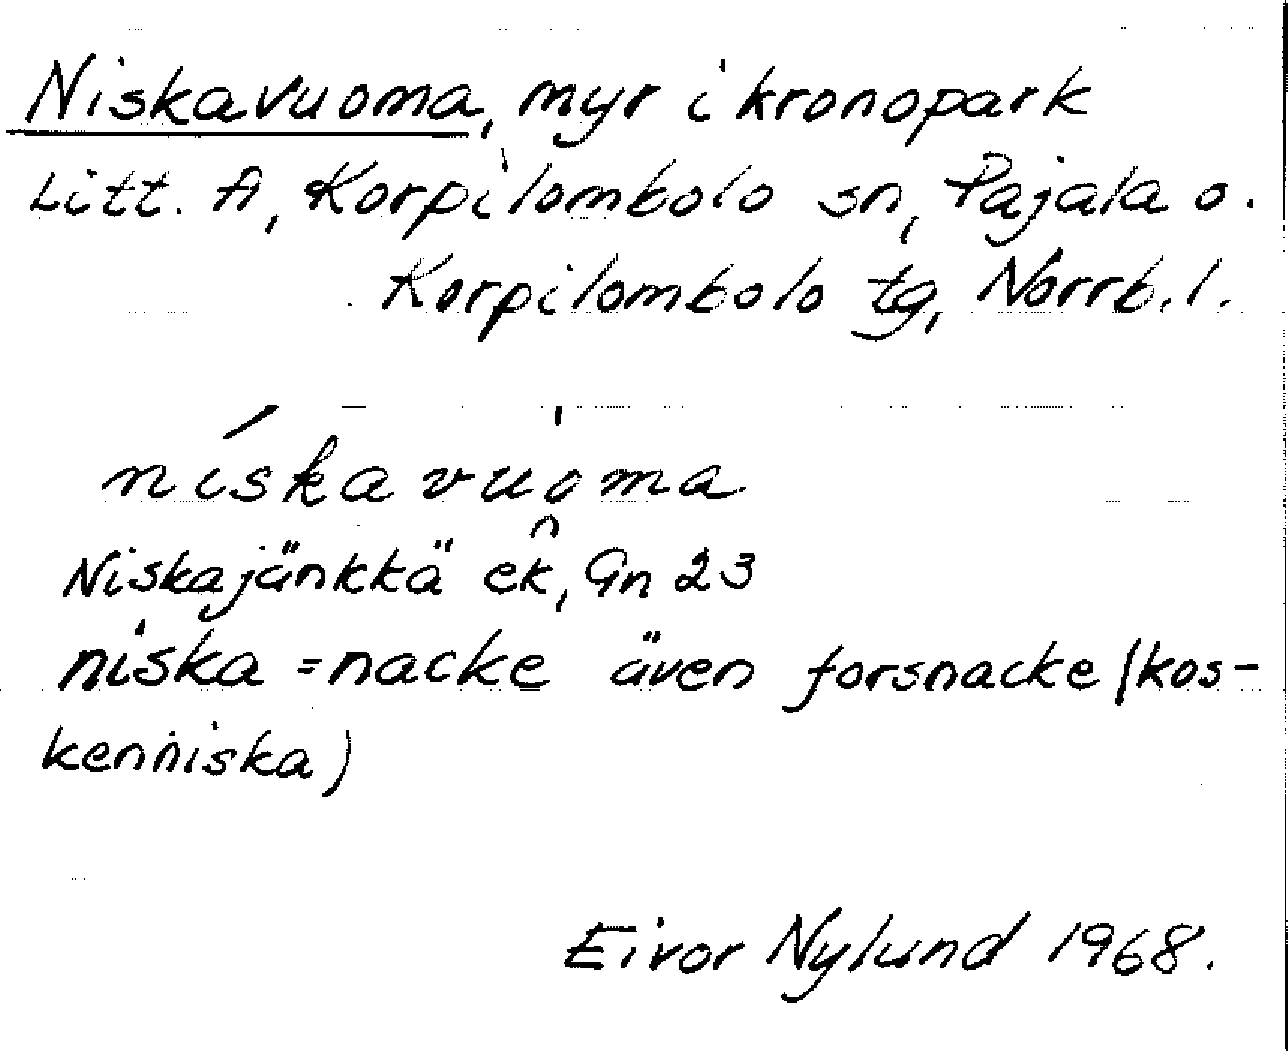 Niskavuoma, myr i kronopark
Litt. A, Korpilombolo sn, Pajala o.
Korpilombolo tg, Norrb. l.
níska vuoma
Niskajänkkä ek, Gn 23
niska = nacke även forsnacke (kos-
kenniska)
Eivor Nylund 1968.